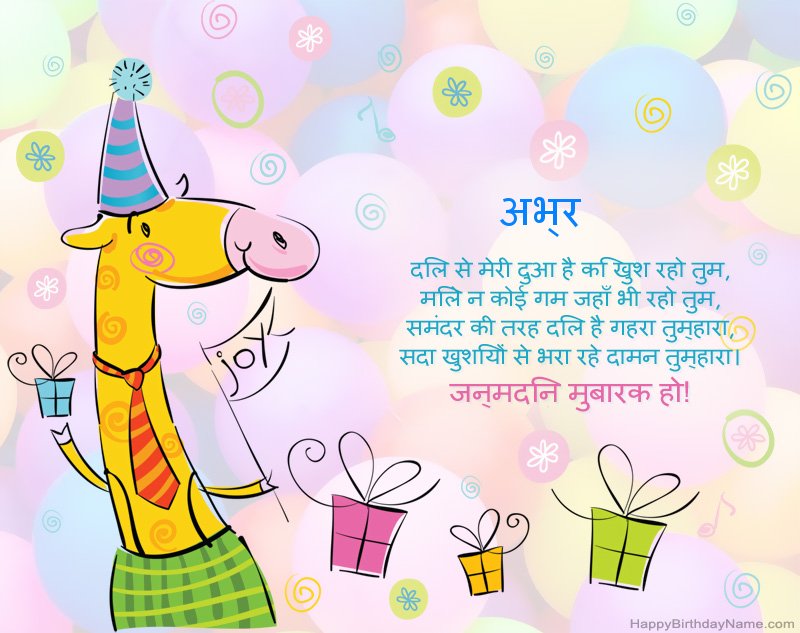 अभ्र
दिल से मेरी दुआ है कि खुश रहो तुम,
मिले न कोई गम जहाँ भी रहो तुम,
समंदर की तरह दिल है गहरा तुम्हारा,
सदा खुशियों से भरा रहे दामन तुम्हारा।
जन्मदिन मुबारक हो!
joy
HappyBirthdayName.com